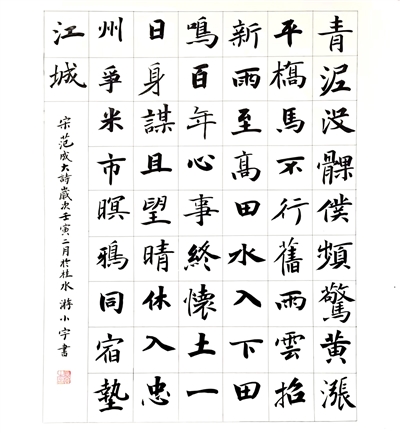 青泥没髁僕頻驚黄漲
平橋馬不行舊雨雲招
新雨至高田水入下田
鳴百年心事終懷土一
日身謀且望晴休入忠
州爭米市暝鴉同宿墊
江城
宋范成大詩歲次壬寅二月於水小宇書